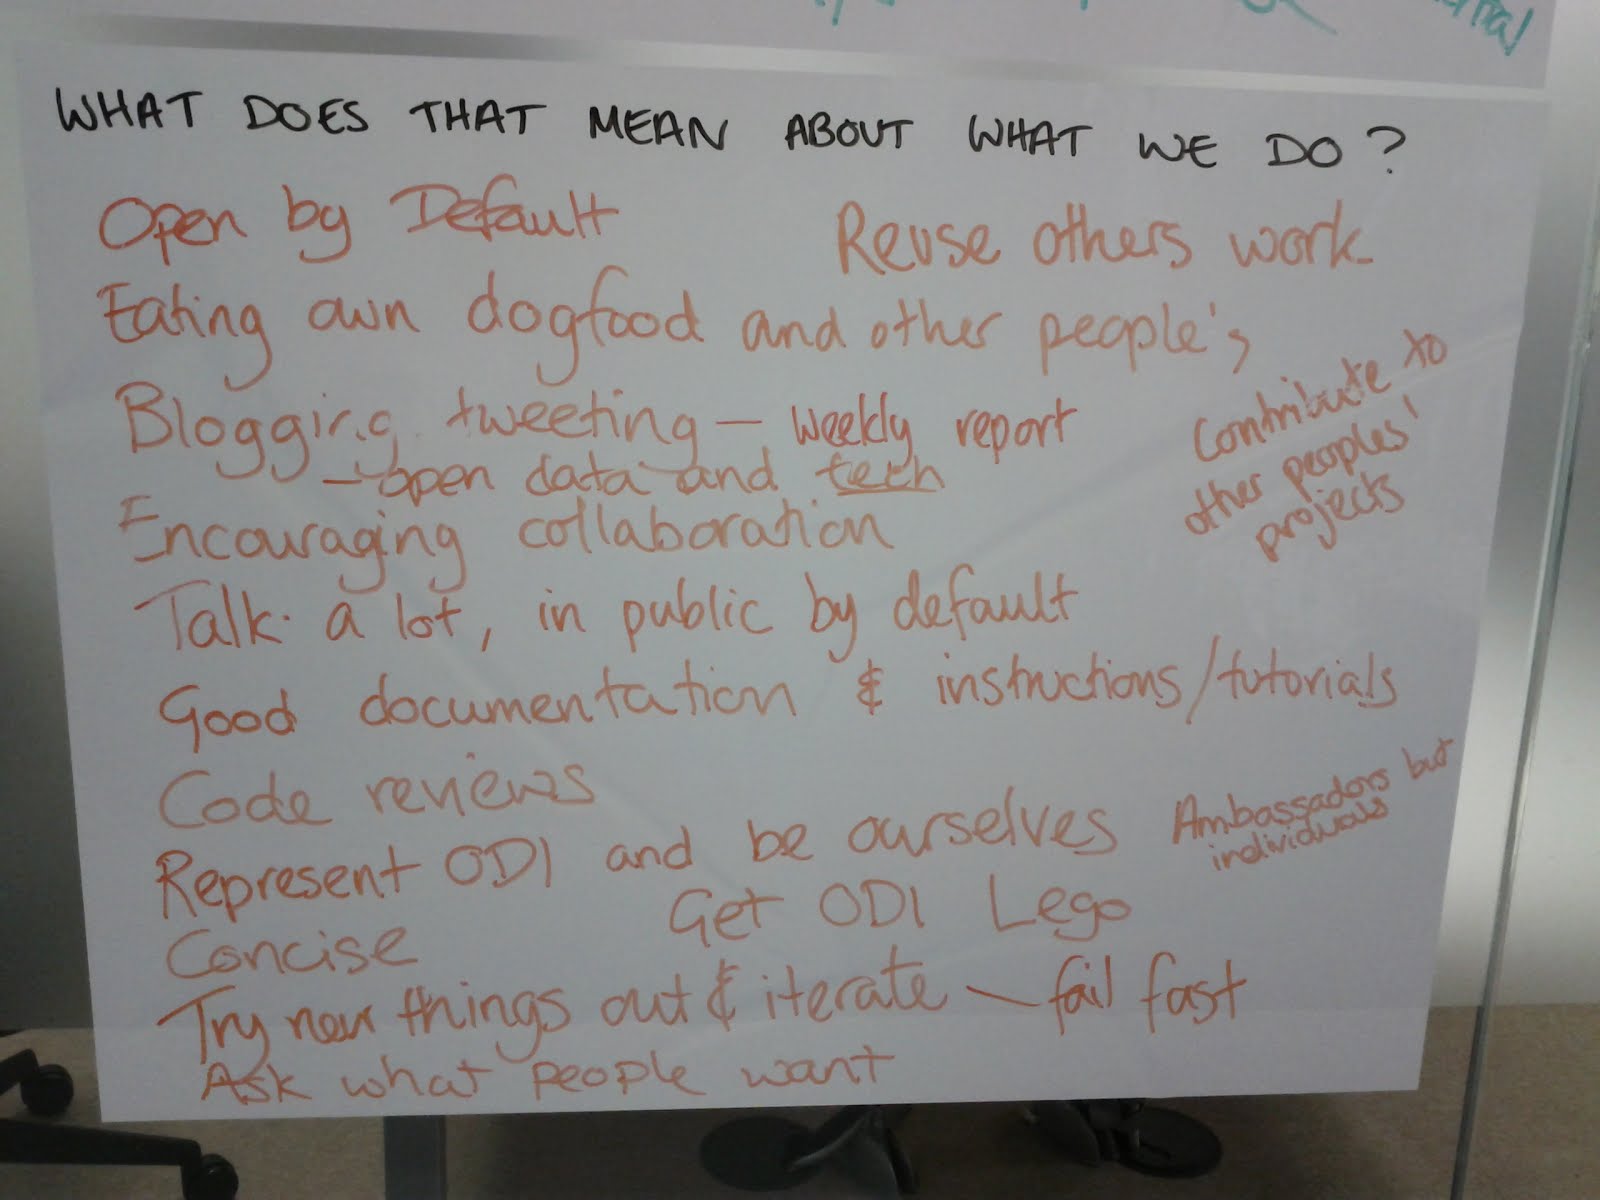 WHAT DOES THAT MEAN ABOUT WHAT WE DO?
Open by Default
Reuse others work
Eating own dogfood and other people's
Blogging tweeting – weekly report
– open data and tech
Contribute to
other peoples'
projects
Encouraging collaboration
Talk a lot, in public by default
Good documentation & instructions/tutorials
Code reviews
Represent ODI and be ourselves
Ambassadors but
individuals
Get ODI Lego
Concise
Try new things out & iterate – fail fast
Ask what people want